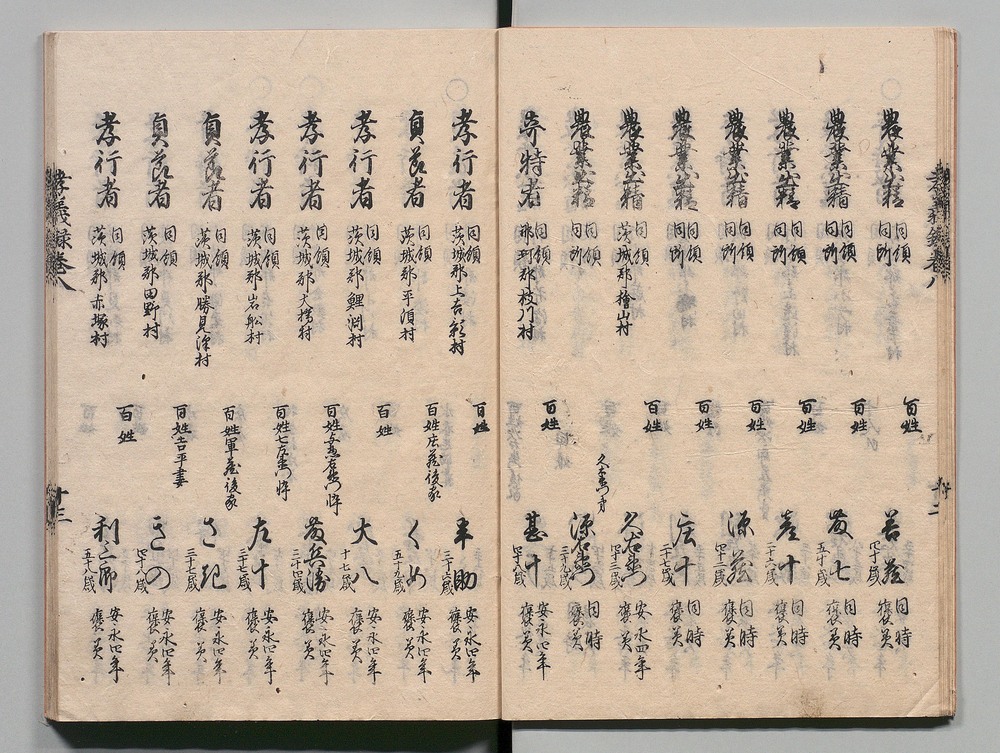 孝義録巻八
十二
農業出精 同領 同所 百姓 善蔵 四十歳 同時 褒美
農業出精 同領 同所 百姓 茂七 五十歳 同時 褒美
農業出精 同領 同所 百姓 彦十 二十六歳 同時 褒美
農業出精 同領 同所 百姓 源蔵 四十二歳 同時 褒美
農業出精 同領 同所 百姓 庄十 二十七歳 同時 褒美
農業出精 同領 茨城郡檜山村 百姓 久右衛門 四十三歳 安永四年 褒美
農業出精 同領 同所 久右衛門弟 源右衛門 三十九歳 同時 褒美
奇特者 同領 那珂郡枝川村 百姓 甚十 四十八歳 安永四年 褒美
孝行者 同領 茨城郡上吉影村 百姓 半助 三十六歳 安永四年 褒美
貞節者 同領 茨城郡平須村 百姓庄蔵後家 くめ 五十九歳 安永四年 褒美
孝行者 同領 茨城郡鯉渕村 百姓 大八 十七歳 安永四年 褒美
孝行者 同領 茨城郡大橋村 百姓与惣右衛門忰 茂兵衛 三十四歳 安永四年 褒美
孝行者 同領 茨城郡岩舩村 百姓七左衛門忰 左十 三十七歳 安永四年 褒美
貞節者 同領 茨城郡勝見沢村 百姓軍蔵後家 さき 三十七歳 安永四年 褒美
貞節者 同領 茨城郡田野村 百姓吉平妻 きの 四十八歳 安永四年 褒美
孝行者 同領 茨城郡赤塚村 百姓 利三郎 五十八歳 安永四年 褒美
孝義録巻八
十三